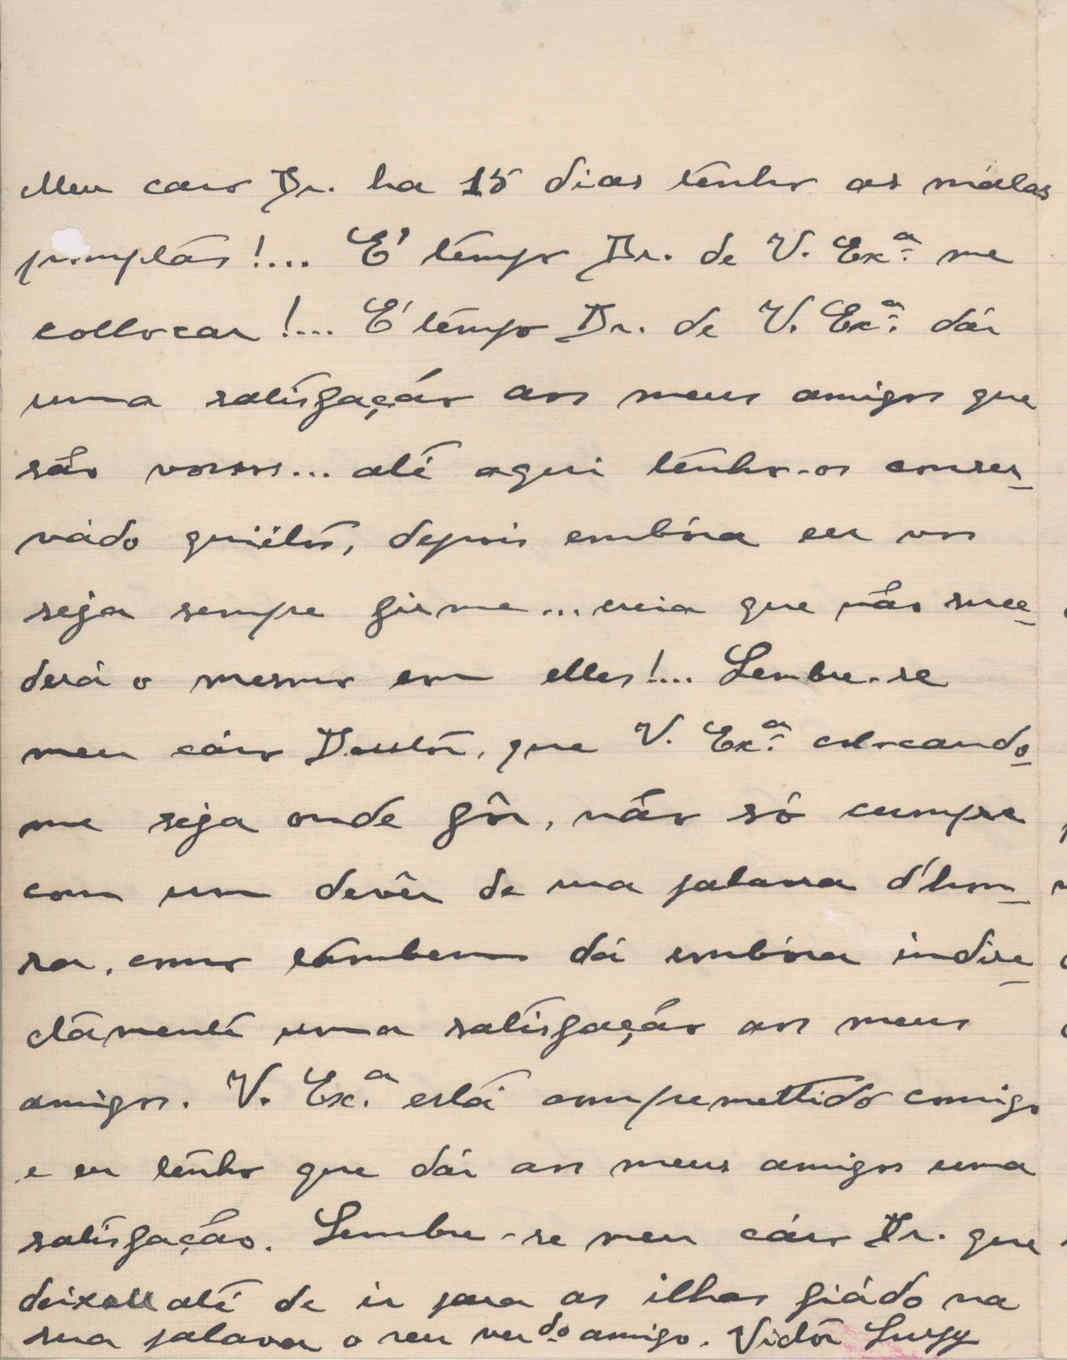 Meu caro Dr. ha 15 dias tenho as málas
promptas!... E' tempo Dr. de V. Exª. me
collocar!... E' tempo Dr. de V. Exª. dár
uma satisfação aos meus amigos que
são vossos... até aqui tenho-os conser-
vádo quiétos, depois embóra eu vos
seja sempre firme... creia que não succe-
derá o mesmo com elles!... Lembre-se
meu cáro Doutôr, que V. Exª. colocando-
me seja onde fôr, não só cumpre
com um devêr de sua palavra d'hon-
ra, como tambem dá embóra indire-
ctamente uma satisfação aos meus
amigos. V. Exª. está compremettido comigo
e eu tenho que dár aos meus amigos uma
satisfação. Lembre-se meu cáro Dr. que
deixou até de ir para as ilhas fiádo na
sua palavra o seu verdo amigo. Victôr